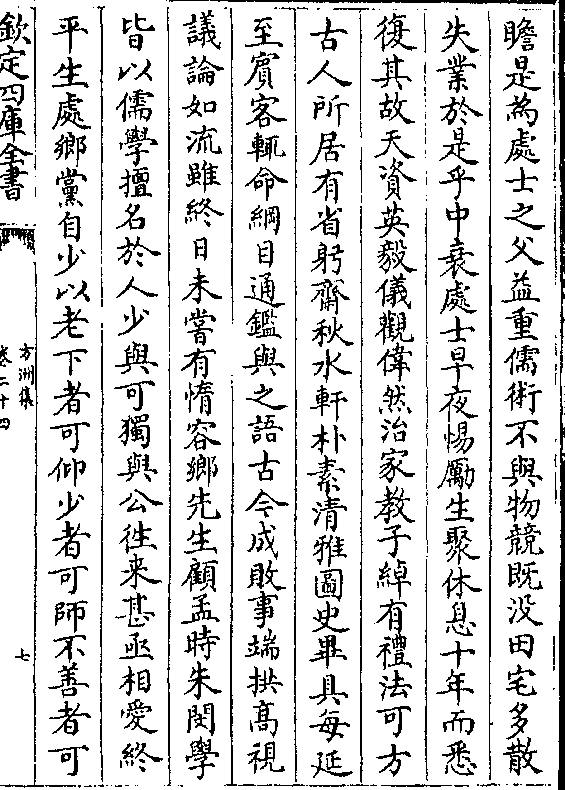 瞻是為處士之父益重儒術不與物競既没田宅多散
失業於是乎中衰處士早夜惕勵生聚休息十年而悉
復其故天資英毅儀觀偉然治家教子綽有禮法可方
古人所居有省躬齋秋水軒朴素清雅圖史畢具每延
至賓客輒命綱目通鑑與之語古今成敗事端拱髙視
議論如流雖終日未嘗有惰容鄉先生顧孟時朱閔學
皆以儒學擅名於人少與可獨與公徃来甚亟相愛終
平生處鄉黨自少以老下者可仰少者可師不善者可
欽定四庫全書
方洲集
卷二十四
七